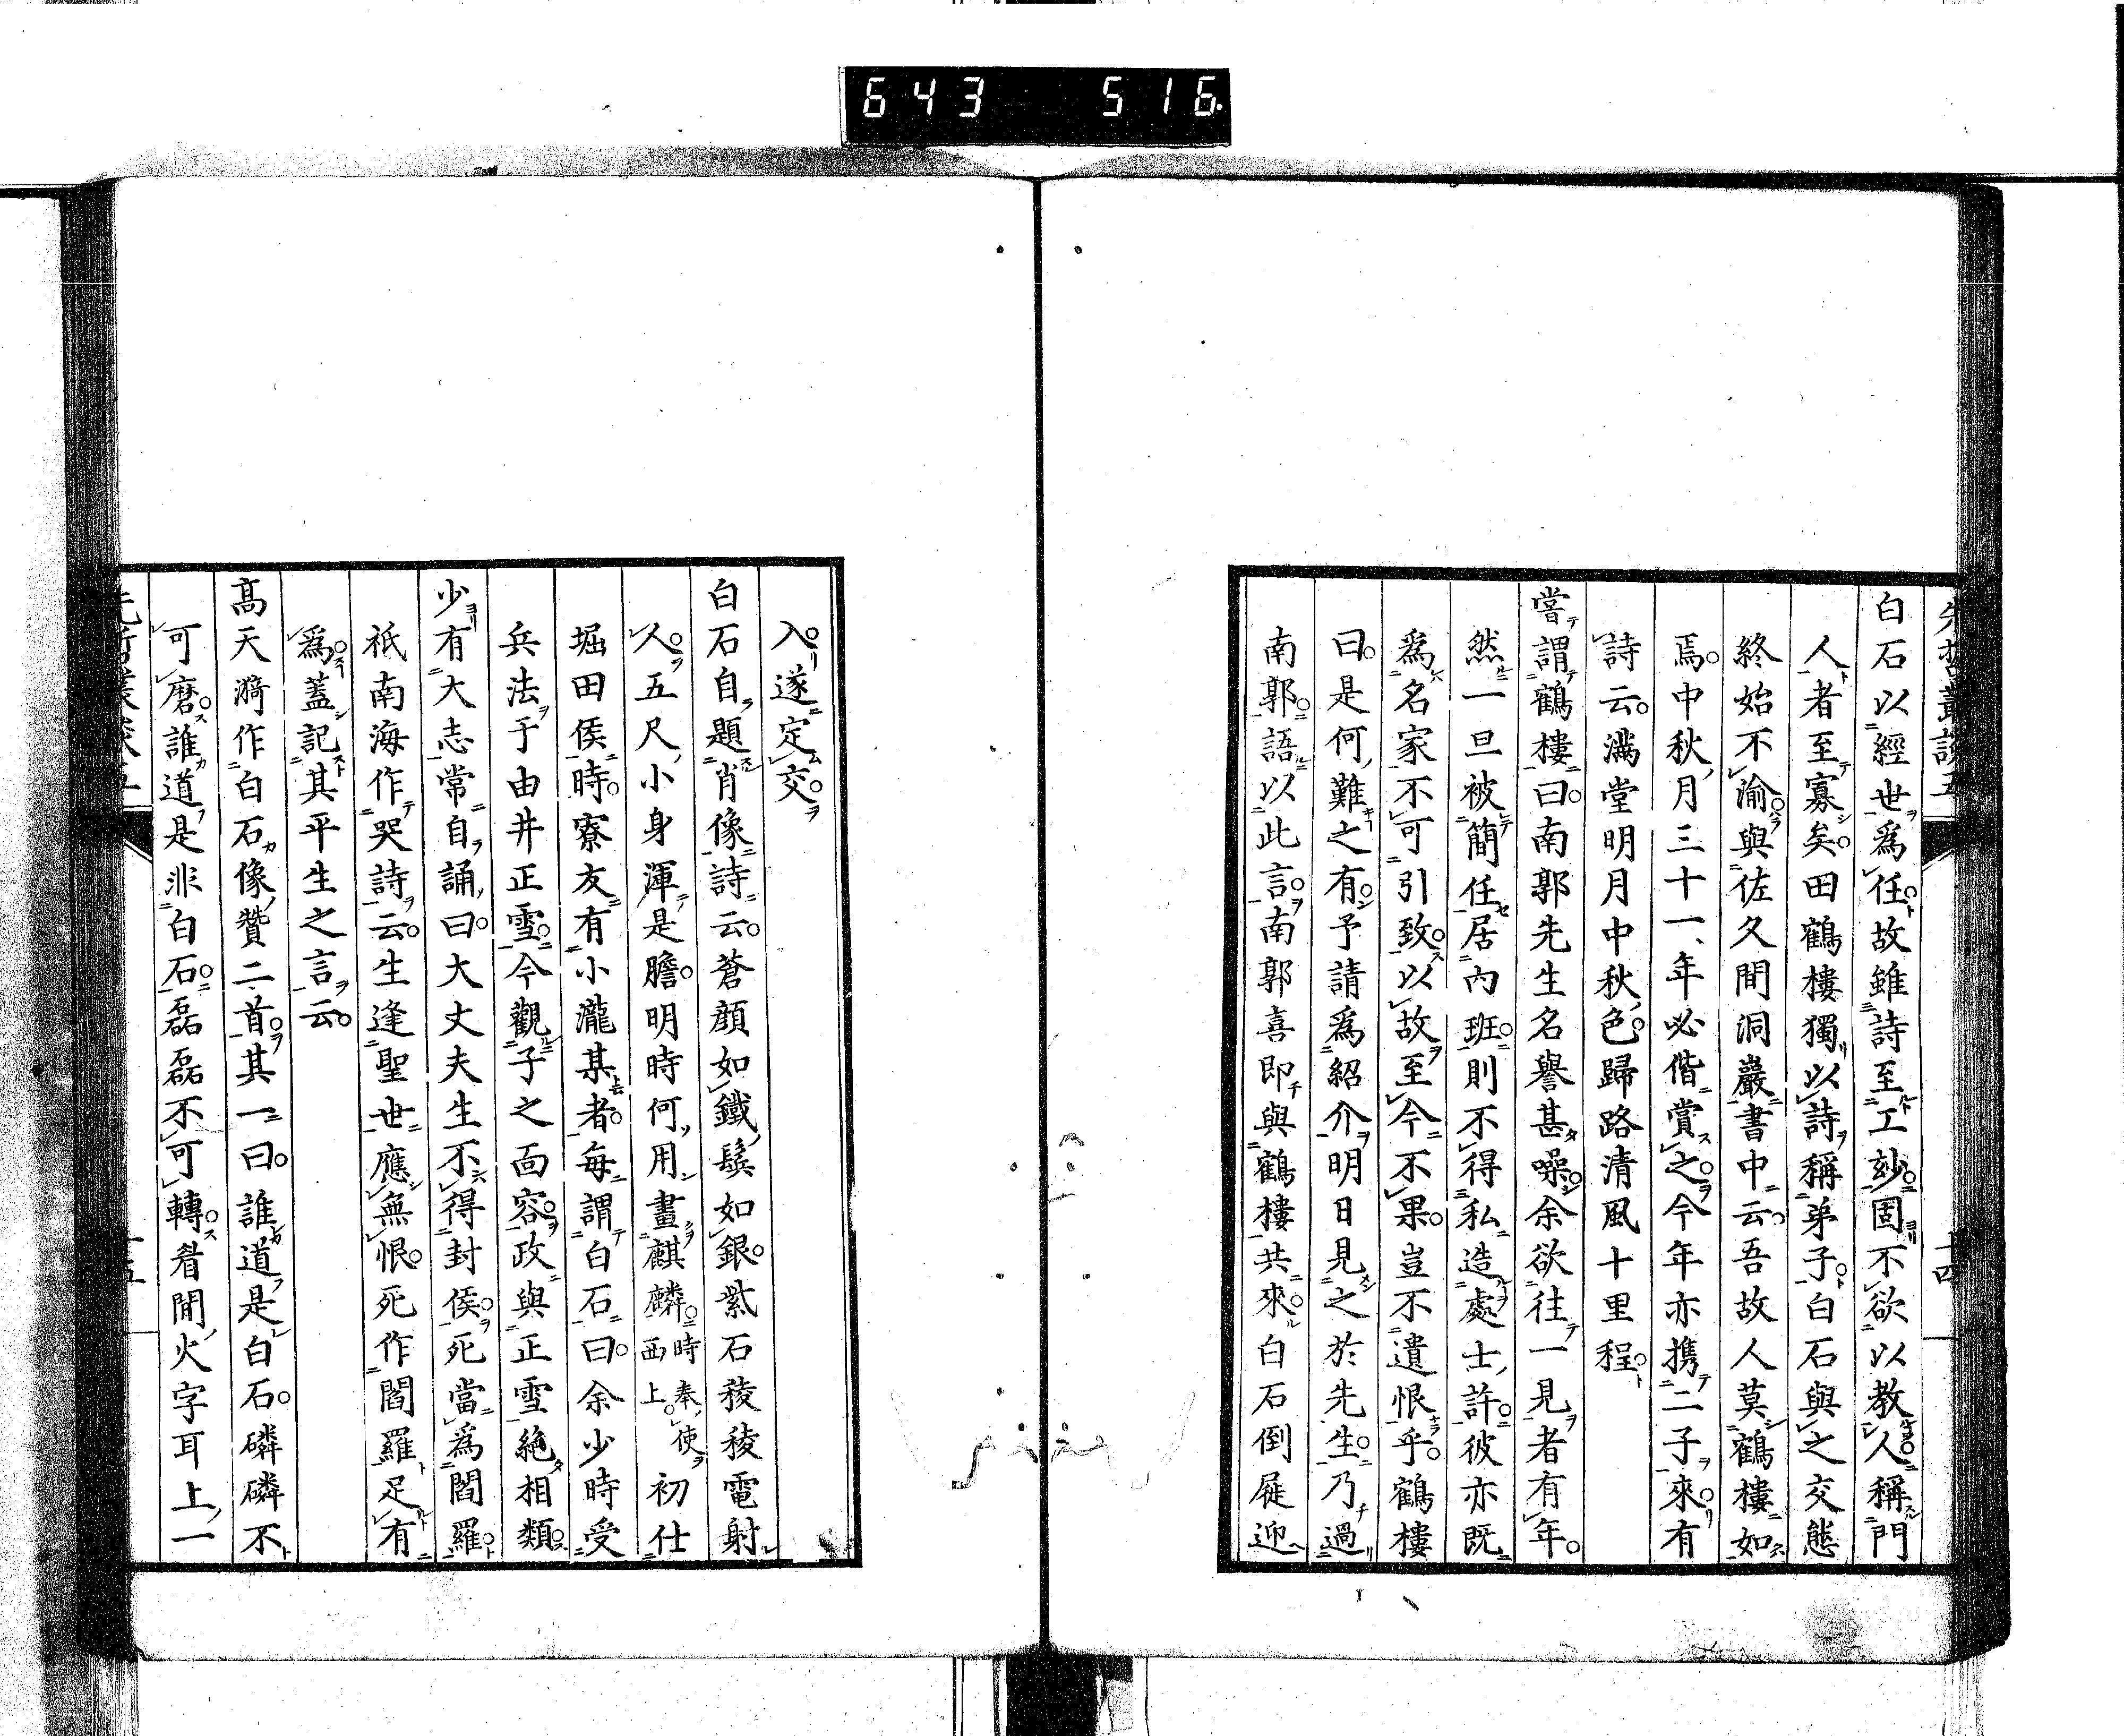 643 516
先哲叢談五
十四
白石以經世爲任故雖詩至工玅固不欲以教人稱門
人者至寡矣田鶴樓獨以詩稱弟子白石與之交態
終始不渝與佐久間洞巖書中云吾故人莫鶴樓如
焉中秋月三十一年必偕賞之今年亦携二子來有
詩云滿堂明月中秋色歸路清風十里程
嘗謂鶴樓曰南郭先生名譽甚噪余欲往一見者有年
然一旦被簡任居内班則不得私造處士許彼亦既
爲名家不可引致以故至今不果豈不遺恨乎鶴樓
曰是何難之有予請爲紹介明日見之於先生乃過
南郭語以此言南郭喜即與鶴樓共來白石倒屣迎
入遂定交
白石自題肖像詩云蒼顏如鐵鬢如銀紫石稜稜電射
人五尺小身渾是膽明時何用畫麒麟時奉使西上初仕
堀田侯時寮友有小瀧某者毎謂白石曰余少時受
兵法于由井正雪今觀子之面容政與正雪絶相類
少有大志常自誦曰大丈夫生不得封侯死當爲閻羅
祇南海作哭詩云生逢聖世應無恨死作閻羅足有
爲蓋記其平生之言云
髙天漪作白石像贊二首其一曰誰道是白石磷磷不
可磨誰道是非白石磊磊不可轉看閒火字耳上一
十五